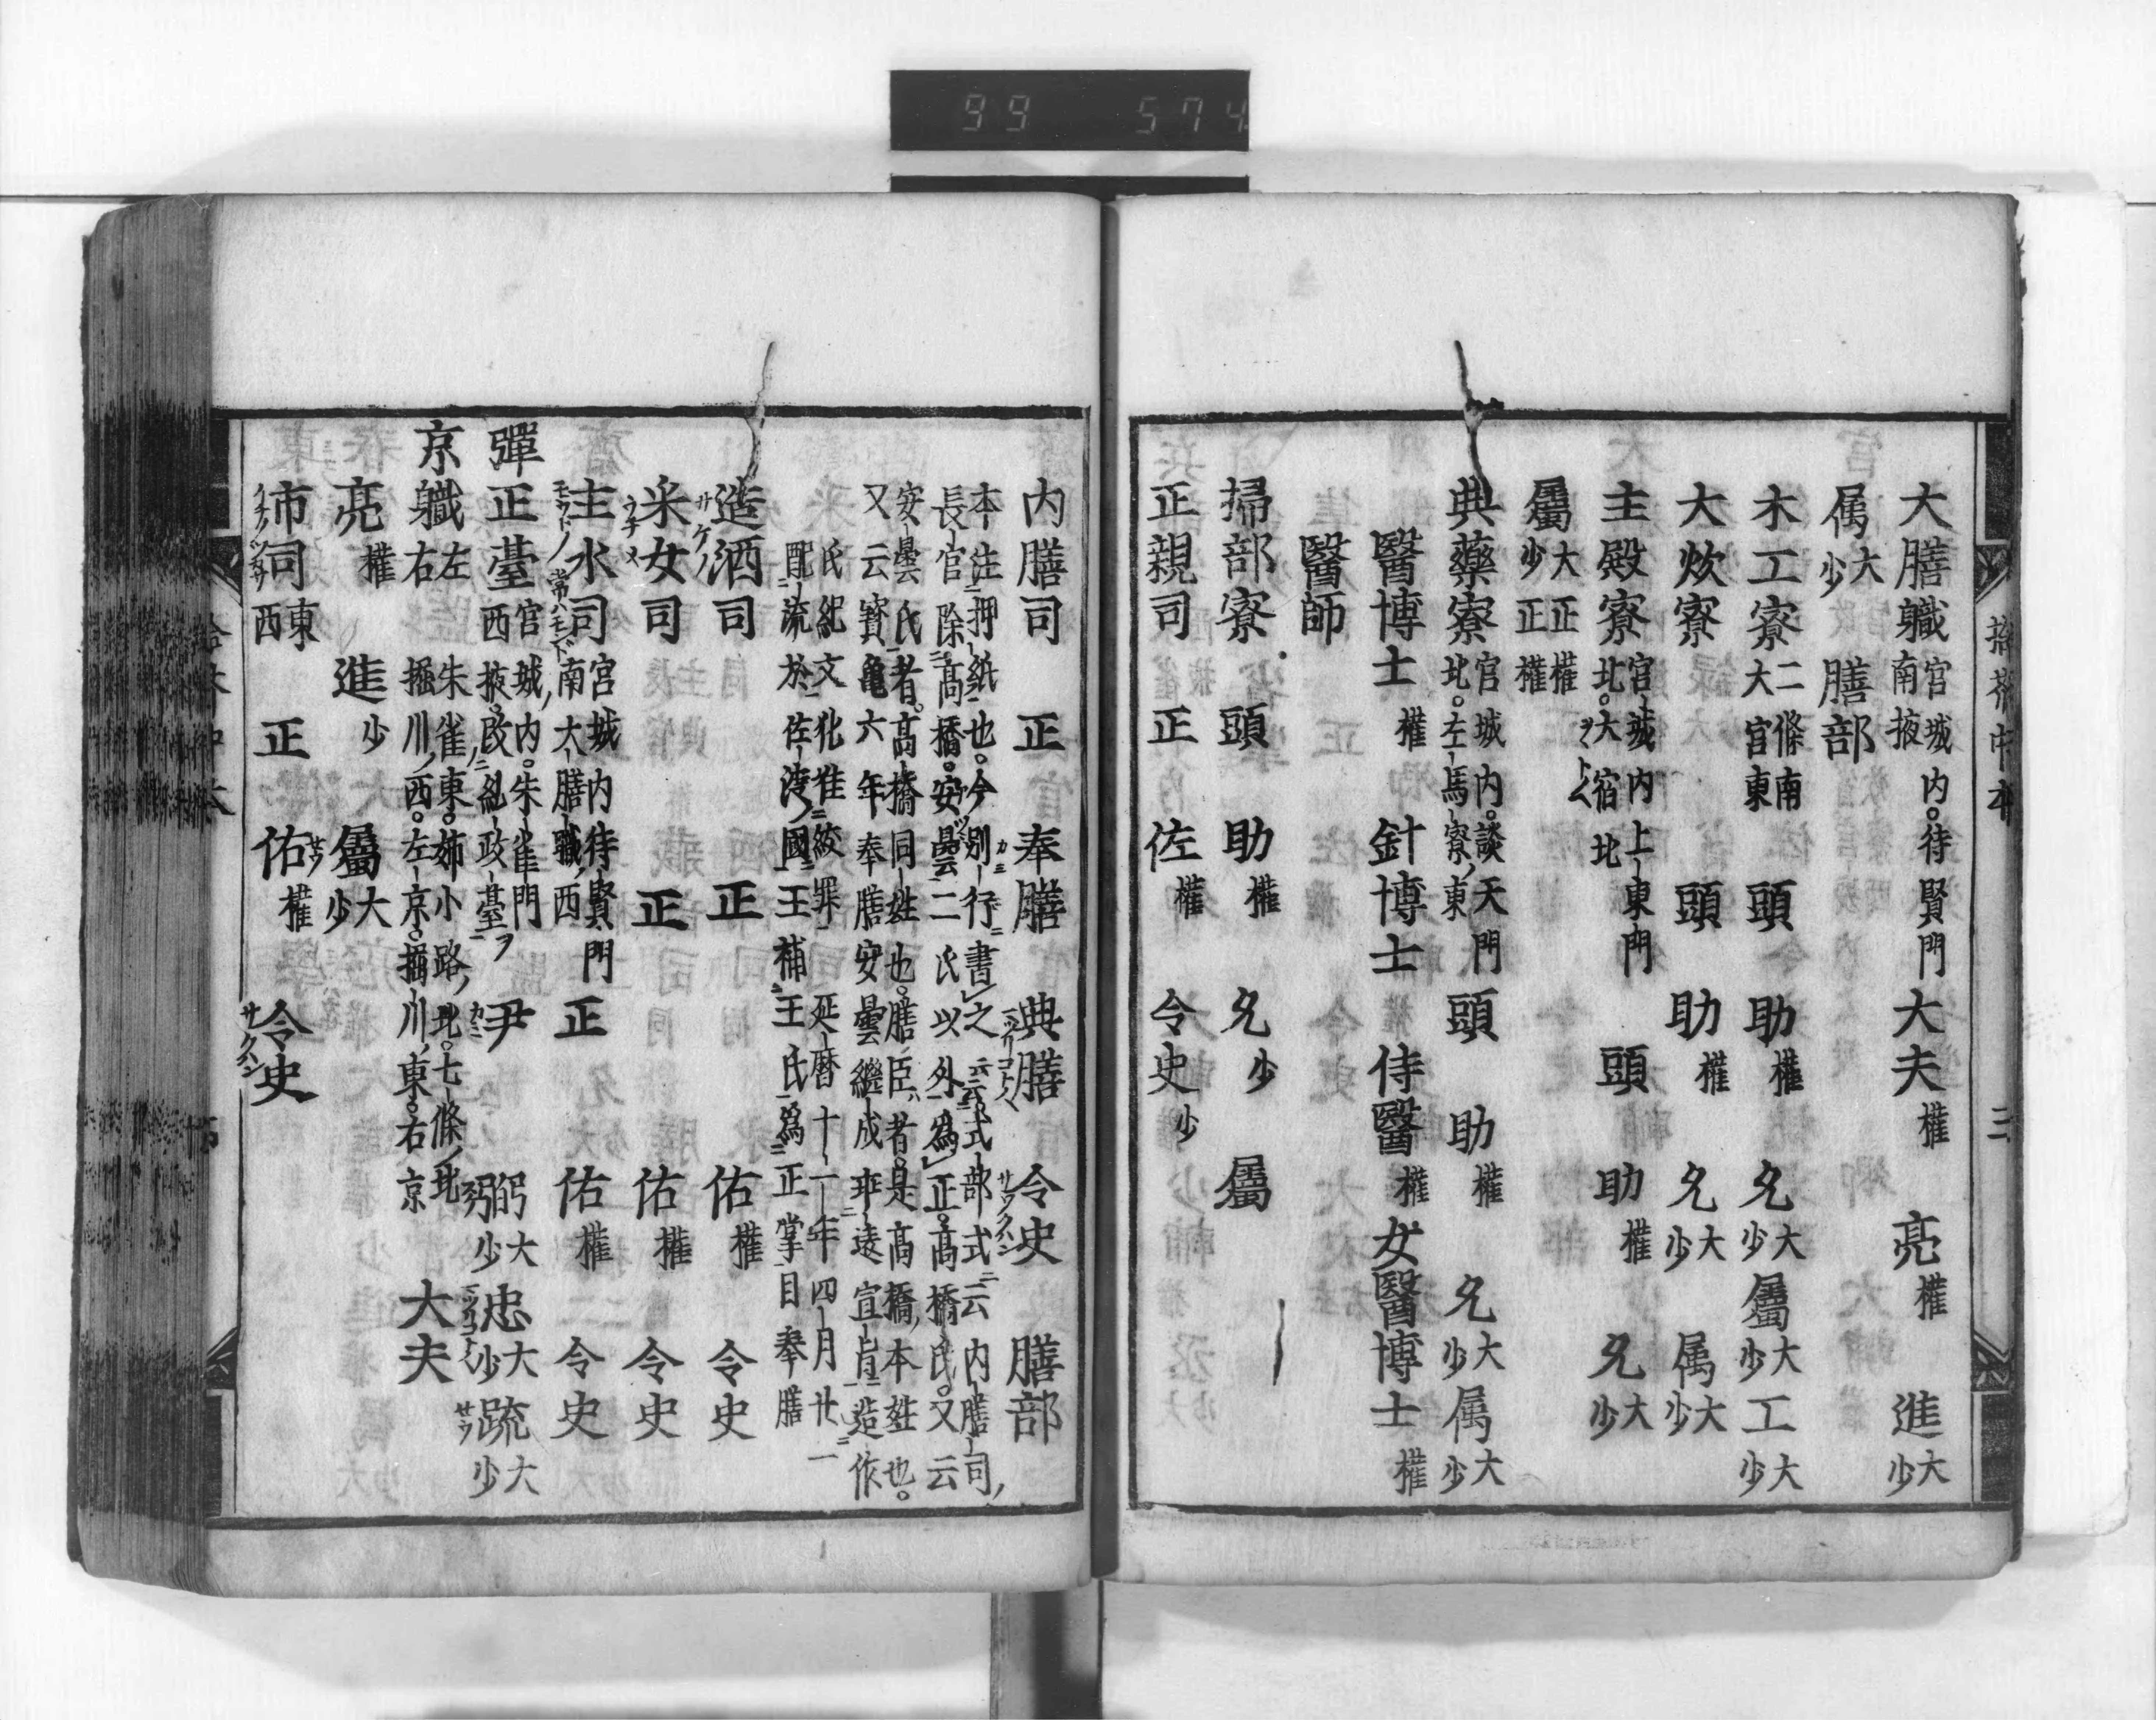 99 574
大膳職 宮城内。待賢門南掖 大夫 權 亮 權 進 大少
属 大少 膳部
木工寮 二條南大宮東 頭 助 權 允 大少 屬 大少 工 大少
大炊寮 頭 助 權 允 大少 属 大少
主殿寮 宮城内上東門北。大宿北 頭 助 權 允 大少
屬 大少 正權正權
典藥寮 宮城内。談天門北。左馬寮東 頭 助 權 允 大少 属 大少
醫博士 權 針博士 侍醫 權 女醫博士 權
醫師
掃部寮 頭 助 權 允 少 屬
正親司 正 佐 權 令史 少
内膳司 正 奉膳 典膳 令史 膳部
本注押紙也。今別行書之 云式部式云内膳司
長官除高橋。安曇二氏以外爲正。高橋氏。又云
安曇氏者。高橋同姓也。膳臣者。是高橋本姓也。
又云寳龜六年奉膳安曇繼成乖違宣旨造作
氏紀文 准絞罪 延暦十一年四月廿一
配流於佐渡國 王補王氏爲正掌目奉膳
造酒司 サケノ 正 佑 權 令史
采女司 ウチメ 正 佑 權 令史
主水司 宮城内待賢門南大膳職西 正 佑 權 令史
彈正臺 宮城内。朱雀門西掖。改糺政臺 尹 弼 大少 忠 大少 疏 大少
京職 左右 朱雀東。姉小路北。堀川西。左京。七條北 堀川東。右京 大夫
亮 權 進 少 屬 大少
市司 東西 正 佑 權 令史